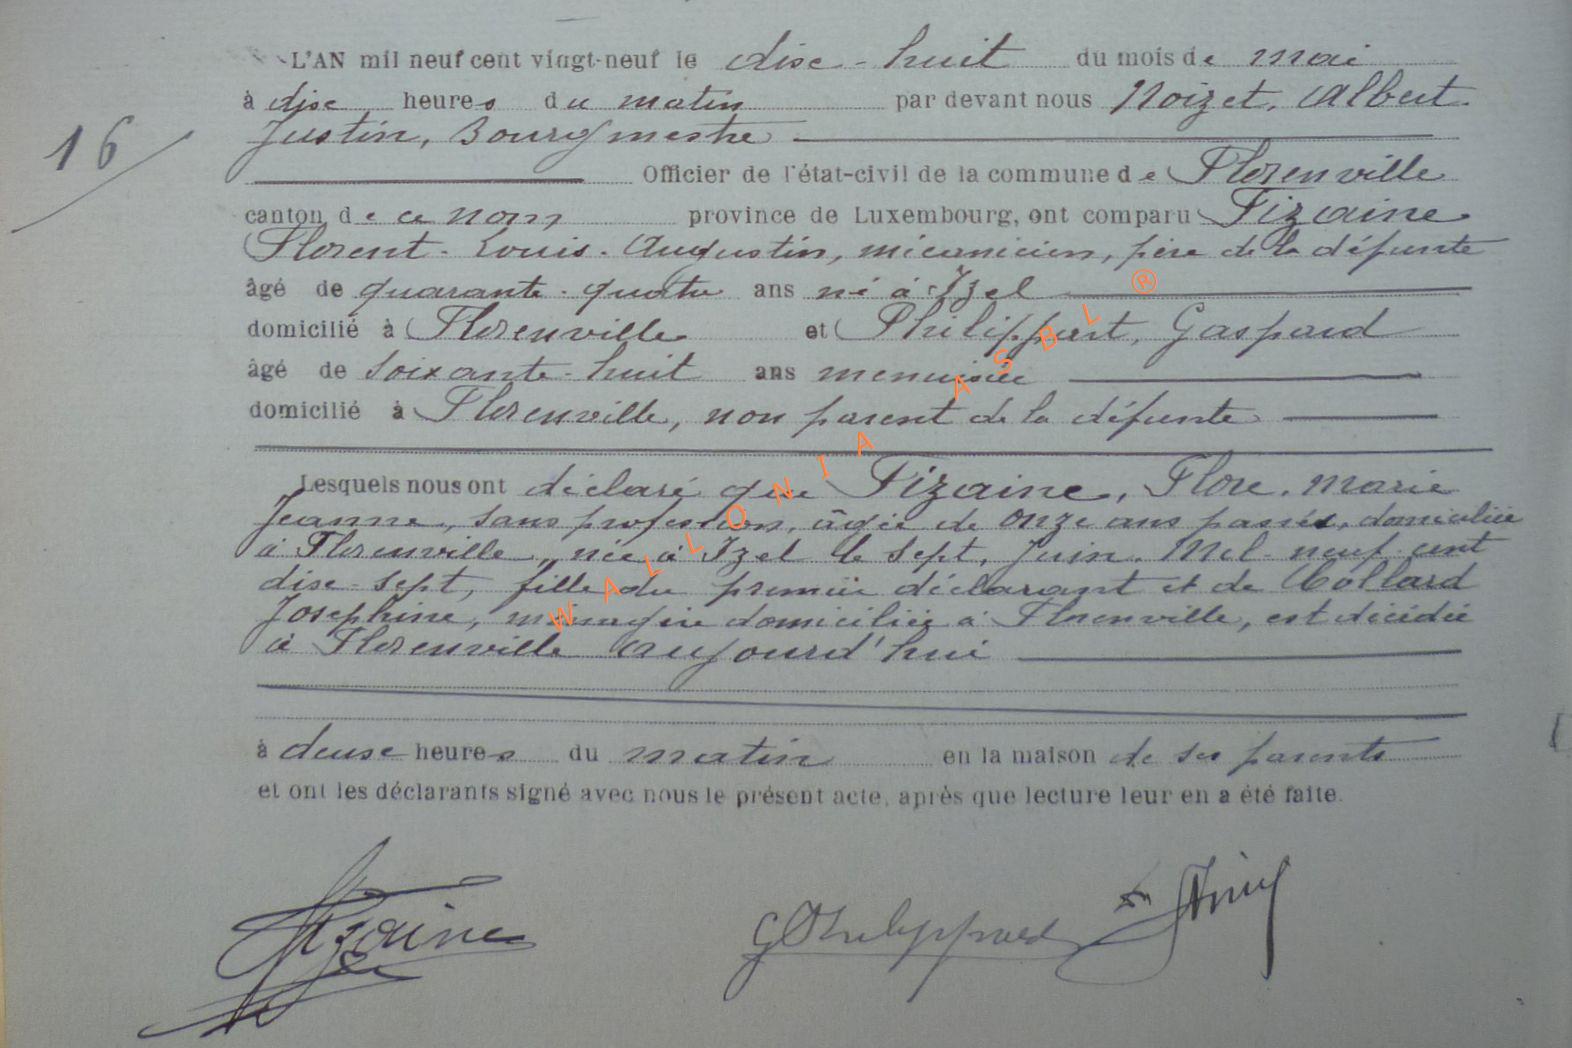 L'AN mil neuf cent vingt-neuf le dix-huit du mois de mai
à dix heures du matin par devant nous Noizet, Albert
Justin, Bourgmestre
16
Officier de l'état-civil de la commune de Florenville
canton de ce nom, province de Luxembourg, ont comparu Fizaine
Florent-Louis-Augustin, mécanicien, père de la défunte
âgé de quarante-quatre ans né à Izel
domicilié à Florenville et Philippart, Gaspard
âgé de soixante-huit ans menuisier
domicilié à Florenville, non parent de la défunte
Lesquels nous ont déclaré que Fizaine, Flore, Marie
Jeanne, sans profession, âgée de onze ans passés, domiciliée
à Florenville, née à Izel le sept Juin Mil neuf cent
dix-sept, fille du premier déclarant et de Collard
Josephine, ménagère domiciliée à Florenville, est décédée
à Florenville aujourd'hui
à deux heures du matin en la maison de ses parents
et ont les déclarants signé avec nous le présent acte, après que lecture leur en a été faite.
Fizaine G Philippard
WALLONIA ASBL ®